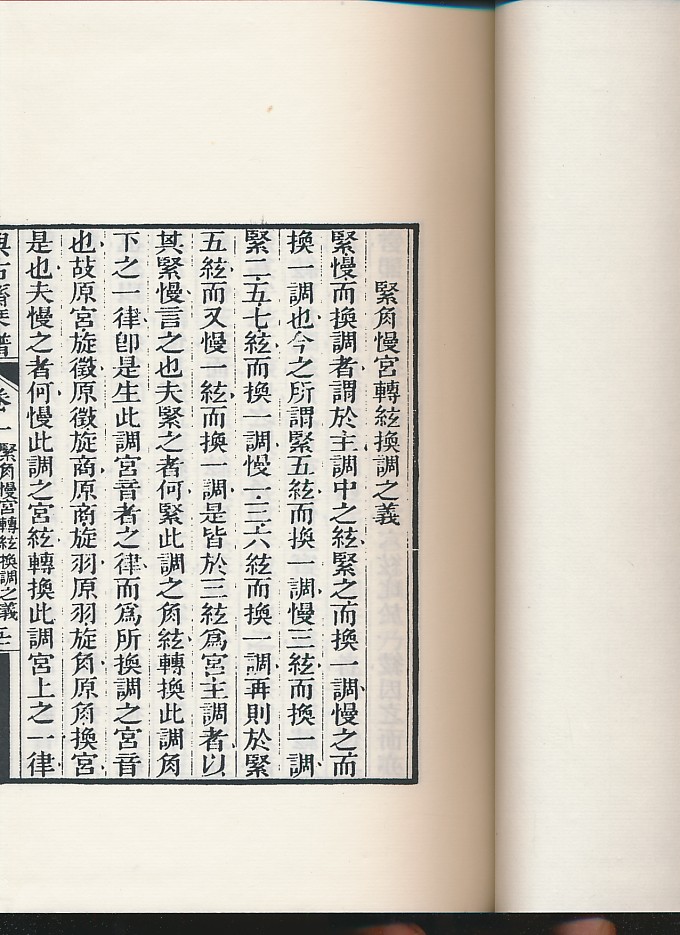 緊角慢宮轉絃換調之義
緊慢而換調者謂於主調中之絃緊之而換一調慢之而
換一調也今之所謂緊五絃而換一調慢三絃而換一調
緊二五七絃而換一調慢一三六絃而換一調再則於緊
五絃而又慢一絃而換一調是皆於三絃爲宮主調者以
其緊慢言之也夫緊之者何緊此調之角絃轉換此調角
下之一律卽是生此調宮音者之律而爲所換調之宮音
也故原宮旋徵原徵旋商原商旋羽原羽旋角原角換宮
是也夫慢之者何慢此調之宮絃轉換此調宮上之一律
與古齋琴譜 卷一 緊角慢宮轉絃換調之義